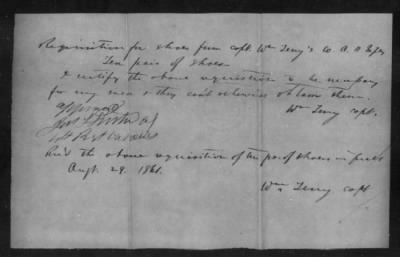 Requisition for shoes from Capt. Wm Terry's Co. A
Ten pair of Shoes
I certify the above requisition to be necessary
for my men & they can't otherwise obtain them.
Wm Terry Capt.
Approved
Rec'd the above requisition of ten pr. of shoes in full
Augt. 29. 1861.
Wm. Terry Capt